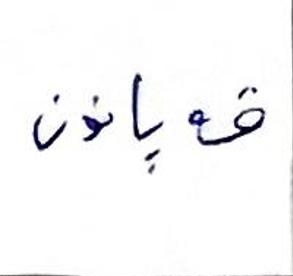 قه يانون